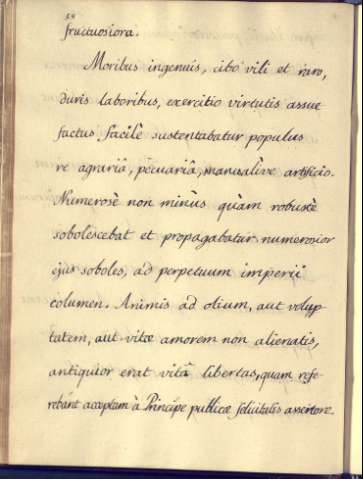 54
fructuosiora.
Moribus ingenuis, cibo vili et raro,
duris laboribus, exercitio virtutis assue
factus facilè sustentabatur populus
re agrariâ, pecuariâ, manualive artificio.
Numerosè non minùs quàm robustè
sobolescebat et propagabatur numerosior
ejus soboles, ad perpetuum imperii
columen. Animis ad otium, aut volup
tatem, aut vitæ amorem non alienatis,
antiquior erat vitâ libertas, quam refe
rebant acceptam à Principe publicæ felicitatis assertore.